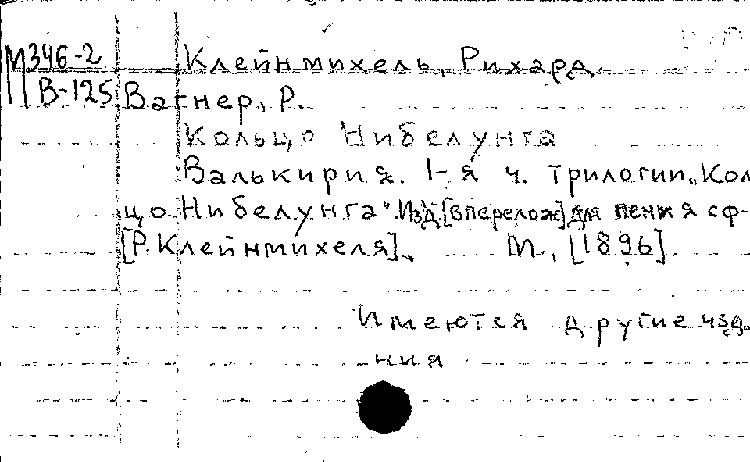 М346-2 Клейнмихель, Рихард
В-125 Вагнер, Р.
Кольцо Нибелунга
Валькирия. 1-я ч. трилогии „Кол
цо Нибелунга" Изд. [в перелож] для пения с ф-
[Р. Клейнмихеля]. М., [1896].
Имеются другие изд.
ния